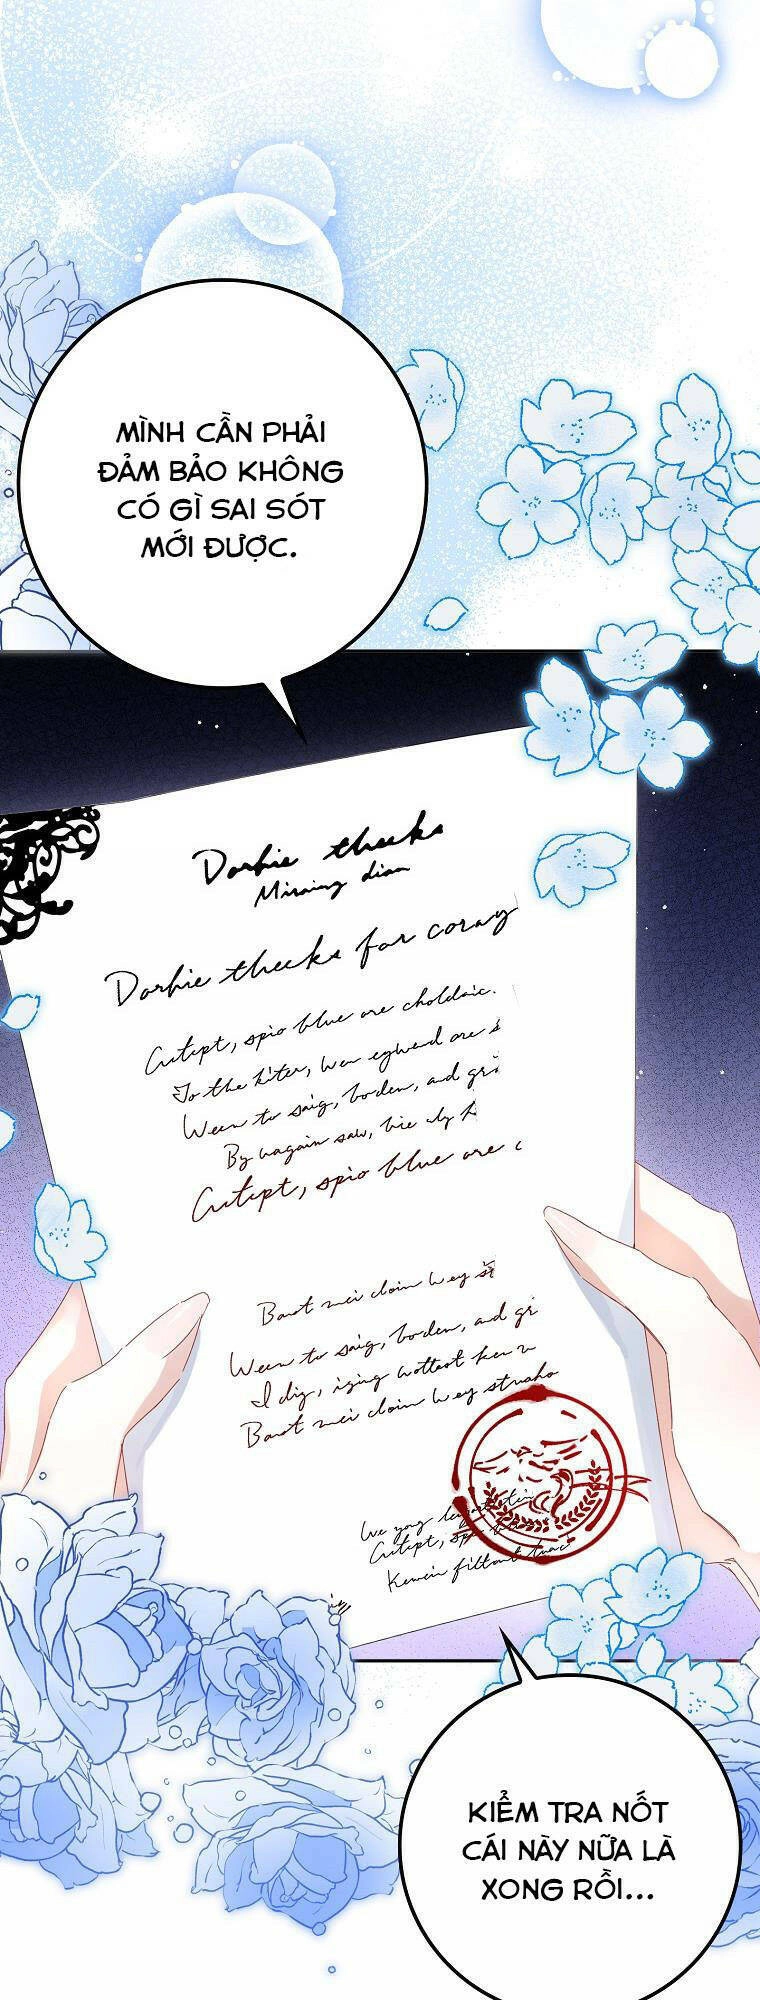 MÌNH CẦN PHẢI
ĐẢM BẢO KHÔNG
CÓ GÌ SAI SÓT
MỚI ĐƯỢC.
Dorhie theeks
Dorhie theeks for coray
Cutept, spio blue are choldaic.
To the kiter, wen eywend are
Ween to saig, boden, and gri
By wagain saw, bie uly
Cutept, spio blue are
Bout mei cloin wey
Ween to saig, boden, and gri
I dig, iging wottest ken
Bout mei cloin wey struaho
Cutept, spio
KIỂM TRA NỐT
CÁI NÀY NỮA LÀ
XONG RỒI...